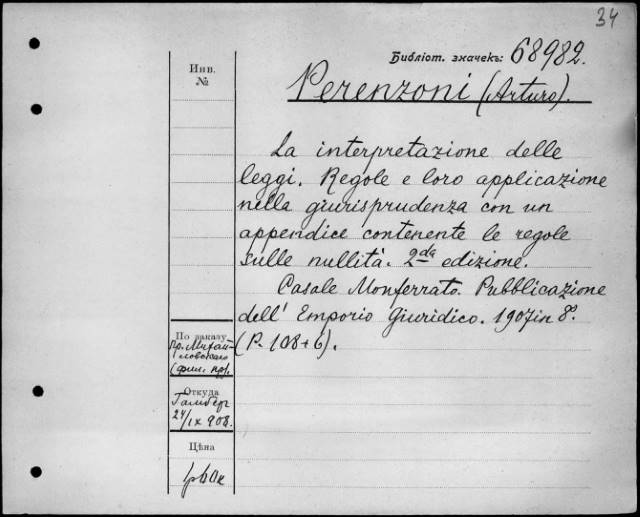 34
Библіот. значекъ: 68982.
Инв.
№
Perenzoni (Arturo).
La interpretazione delle
leggi. Regole e loro applicazione
nella giurisprudenza con un
appendice contenente le regole
sulle nullità. 2da edizione.
Casale Monferrato. Pubblicazione
dell' Emporio Giuridico. 1907 in 8°.
(P. 108+6).
По заказу
пр. Михай-
ловскаго
(фил. пр.).
Откуда
Гамбург
24/IX 908.
Цѣна
1р60к